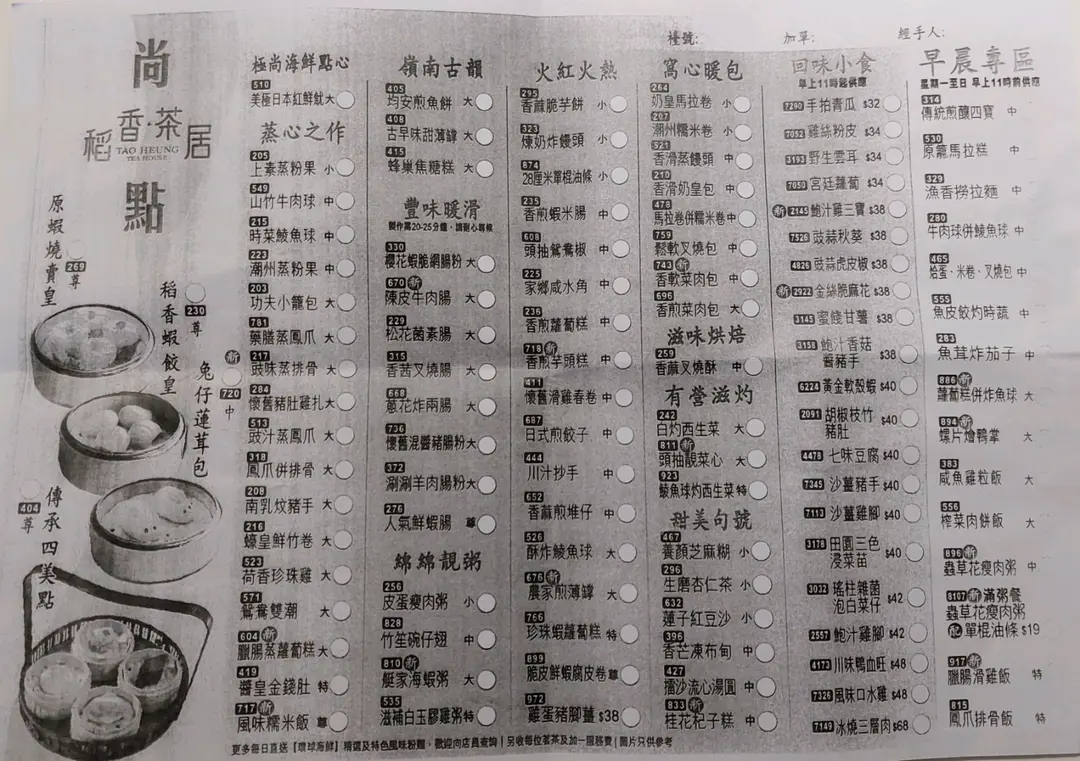 檯號:
加單:
經手人:
尚
稻香·茶居
TAO HEUNG
TEA HOUSE
點
原蝦燒賣皇
269
尊
稻香蝦餃皇
230
尊
兔仔蓮茸包
新
720
中
傳承四美點
404
尊
極尚海鮮點心
510
美極日本紅鮮魷 大
蒸心之作
205
上素蒸粉果 小
549
山竹牛肉球 中
215
時菜鯪魚球 中
223
潮州蒸粉果 中
203
功夫小籠包 大
781
藥膳蒸鳳爪 大
217 新
豉味蒸排骨 大
284
懷舊豬肚雞扎 大
513
豉汁蒸鳳爪 大
318
鳳爪併排骨 大
208
南乳炆豬手 大
216
蠔皇鮮竹卷 大
523
荷香珍珠雞 大
571
鴛鴦雙潮 大
604 新
臘腸蒸蘿蔔糕 大
419
醬皇金錢肚 特
717 新
風味糯米飯 尊
嶺南古韻
405
均安煎魚餅 大
408
古早味甜薄罉 大
415
蜂巢焦糖糕 大
豐味暖滑
製作需20-25分鐘，請耐心等候
330
櫻花蝦脆網腸粉 大
670 新
陳皮牛肉腸 大
229
松花菌素腸 大
315
香茜叉燒腸 大
668
蔥花炸兩腸 大
736
懷舊混醬豬腸粉 大
372
涮涮羊肉腸粉 大
276
人氣鮮蝦腸 尊
綿綿靚粥
256
皮蛋瘦肉粥 小
828
竹笙碗仔翅 中
810 新
艇家海蝦粥 大
535
滋補白玉膠雞粥 特
火紅火熱
295
香蔴脆芋餅 小
323
煉奶炸饅頭 小
674
28厘米單棍油條 小
235
香煎蝦米腸 中
608
頭抽鴛鴦椒 中
225
家鄉咸水角 中
236
香煎蘿蔔糕 中
718 新
香煎芋頭糕 中
411
懷舊滑雞春卷 中
687
日式煎餃子 中
444
川汁抄手 中
652
香蔴煎堆仔 中
526
酥炸鯪魚球 大
676 新
農家煎薄罉 大
766
珍珠蝦蘿蔔糕 特
899
脆皮鮮蝦腐皮卷 尊
972
雞蛋豬腳薑 $38
窩心暖包
264
奶皇馬拉卷 小
207
潮州糯米卷 小
521
香滑蒸饅頭 中
210
香滑奶皇包 中
478
馬拉卷併糯米卷 中
759
鬆軟叉燒包 中
743 新
香軟菜肉包 中
696
香煎菜肉包 大
滋味烘焙
259
香麻叉燒酥 中
有營滋灼
242
白灼西生菜 大
811 新
頭抽靚菜心 大
923
鯪魚球灼西生菜 特
甜美句號
467
養顏芝麻糊 小
296
生磨杏仁茶 小
632
蓮子紅豆沙 小
396
香芒凍布甸 中
427
擂沙流心湯圓 中
833 新
桂花杞子糕 中
回味小食
早上11時起供應
7290 手拍青瓜 $32
7052 雞絲粉皮 $34
3193 野生雲耳 $34
7050 宮廷蘿蔔 $34
新 2145 鮑汁雞三寶 $38
7526 豉蒜秋葵 $38
4826 豉蒜虎皮椒 $38
新 2922 金絲脆麻花 $38
3145 蜜餞甘薯 $38
3158 鮑汁香菇醬豬手 $38
6224 黃金軟殼蝦 $40
2091 胡椒枝竹豬肚 $40
4478 七味豆腐 $40
7345 沙薑豬手 $40
7113 沙薑雞腳 $40
3178 田園三色浸菜苗 $40
3032 瑤柱雜菌泡白菜仔 $42
2557 鮑汁雞腳 $42
4173 川味鴨血旺 $48
7326 風味口水雞 $48
7149 冰燒三層肉 $68
早晨專區
星期一至日 早上11時前供應
314
傳統煎釀四寶 中
530
原籠馬拉糕 中
329
漁香撈拉麵 中
280
牛肉球併鯪魚球 中
465
燒蛋·米卷·叉燒包 中
555
魚皮餃灼時蔬 中
283
魚茸炸茄子 中
886 新
蘿蔔糕併炸魚球 大
894 新
螺片燴鴨掌 大
383
咸魚雞粒飯 大
556
榨菜肉餅飯 大
896 新
蟲草花瘦肉粥 中
8107 新 滿粥餐
蟲草花瘦肉粥
配 單棍油條 $19
917 新
臘腸滑雞飯 特
815
鳳爪排骨飯 特
更多每日直送【環球海鮮】精選及特色風味粉麵，歡迎向店員查詢 | 另收每位茗茶及加一服務費 | 圖片只供參考